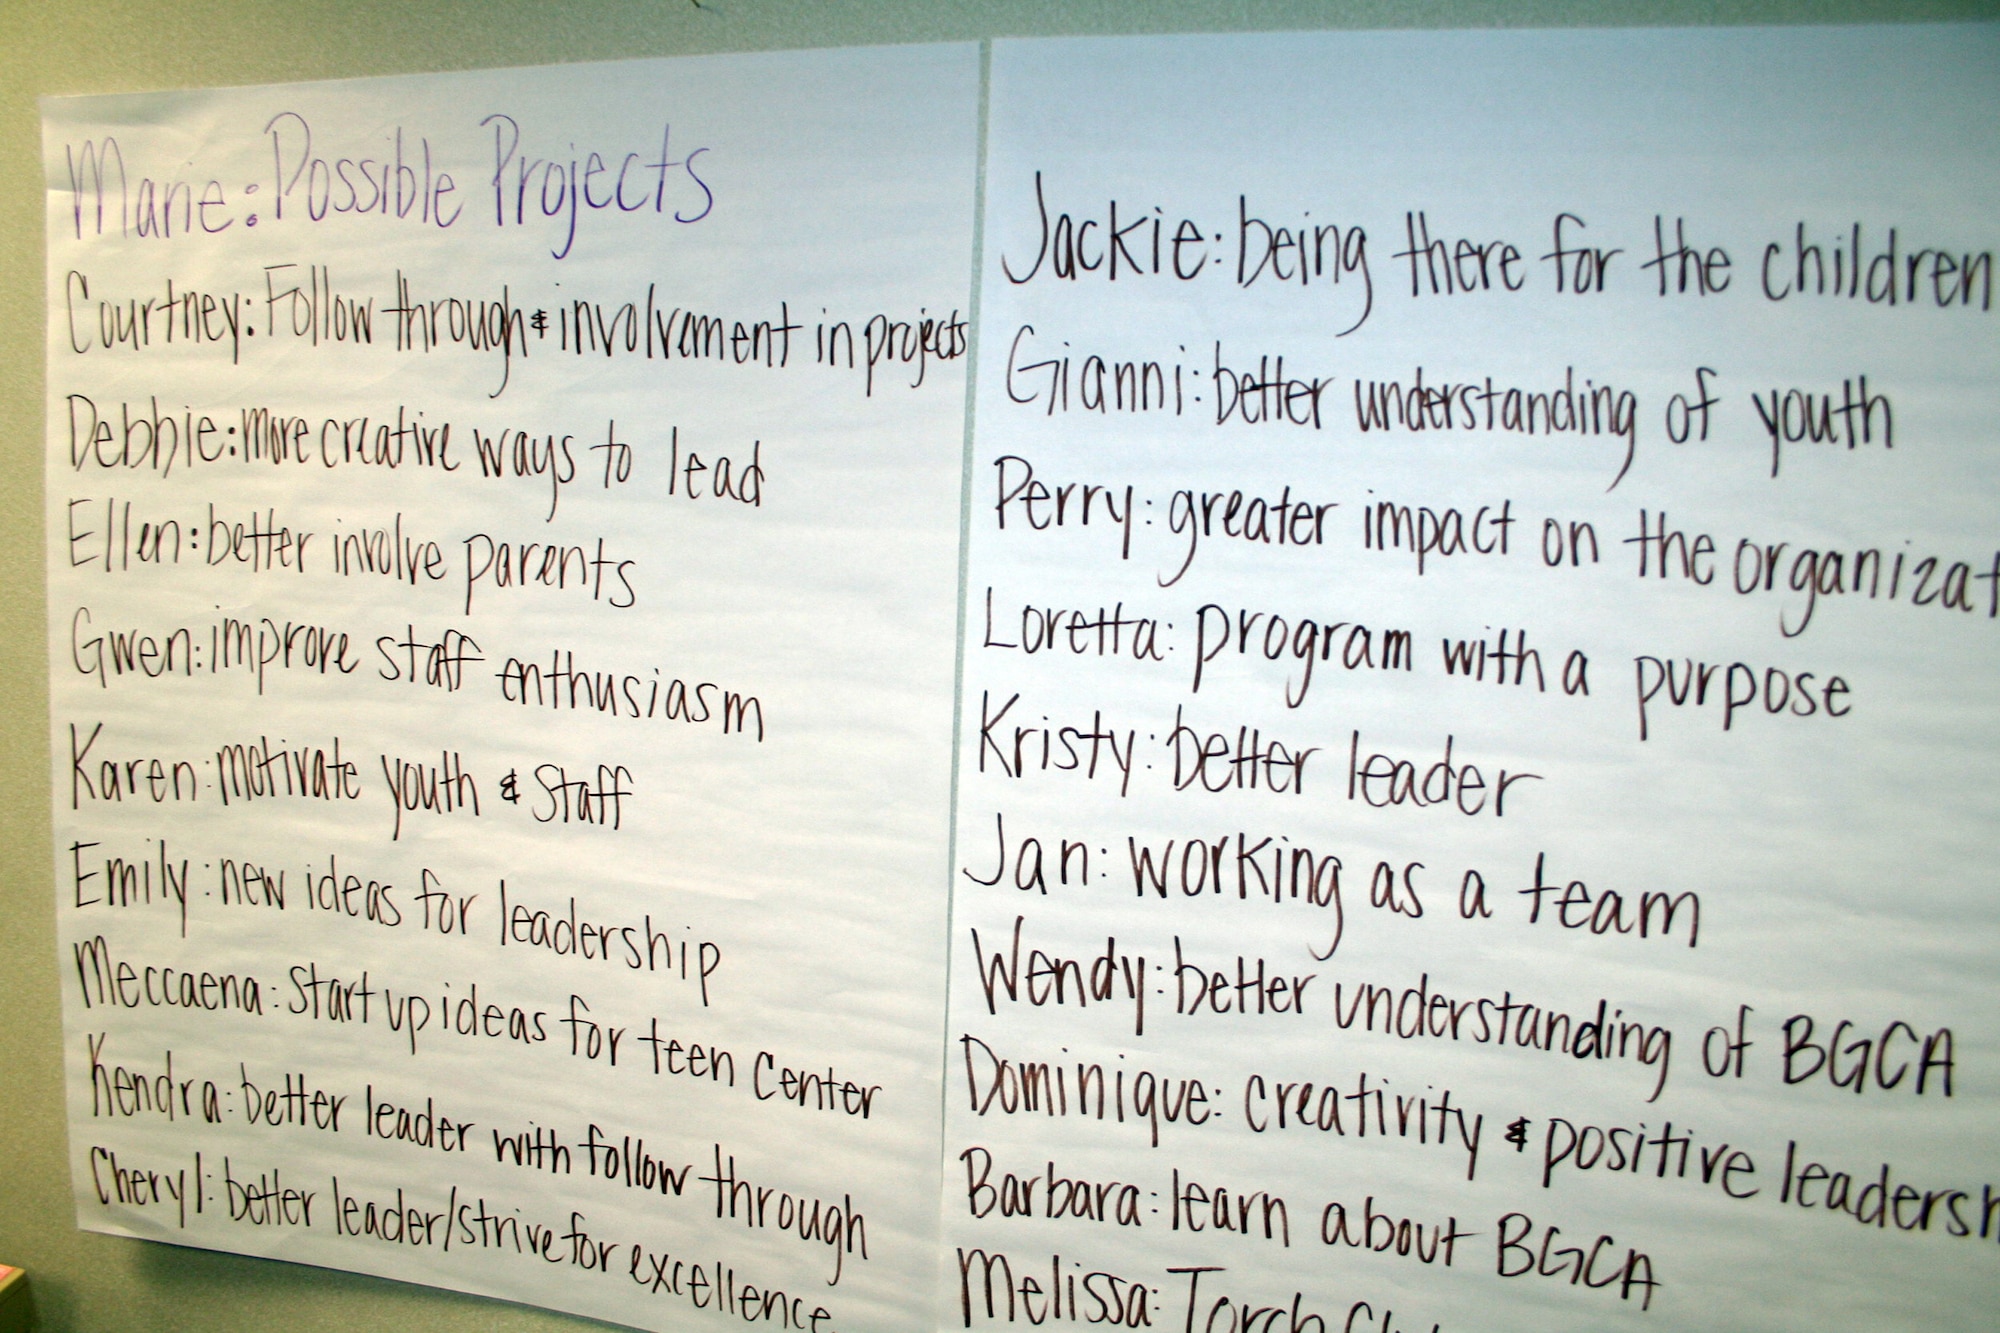 Marie: Possible Projects
Courtney: Follow through & involvement in projects
Debbie: more creative ways to lead
Ellen: better involve parents
Gwen: improve staff enthusiasm
Karen: motivate youth & Staff
Emily: new ideas for leadership
Meccaena: Start up ideas for teen Center
Kendra: better leader with follow through
Cheryl: better leader/strive for excellence
Jackie: being there for the children
Gianni: better understanding of youth
Perry: greater impact on the organizat
Loretta: program with a purpose
Kristy: better leader
Jan: working as a team
Wendy: better understanding of BGCA
Dominique: creativity & positive leadersh
Barbara: learn about BGCA
Melissa: Torch